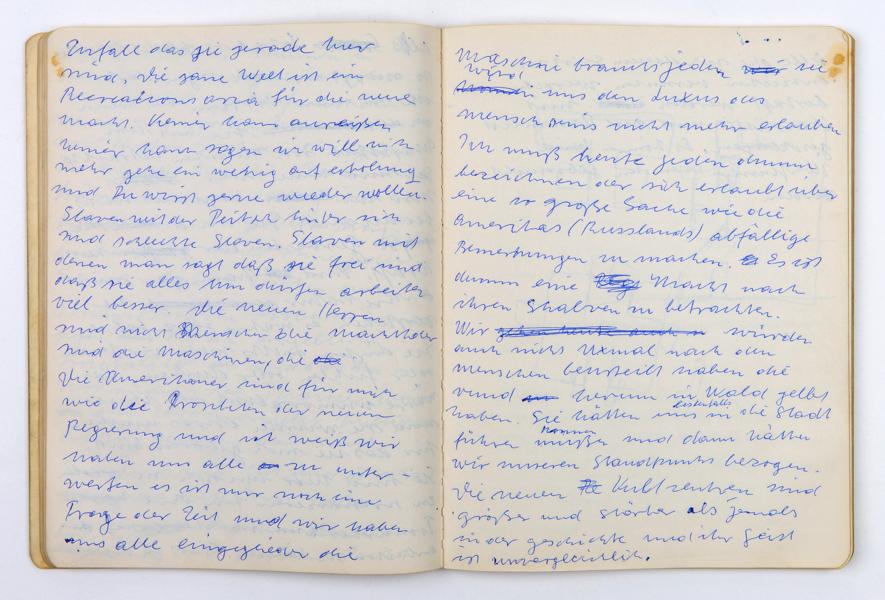 Zufall das sie gerade hier
sind, die ganze Welt ist ein
Recreations aria für die neue
macht. Keiner kann ausreißen
keiner kann sagen ich will nicht
mehr gehe ein wehig auf erholung
und Du wirst gerne wieder wollen.
Slaven mit der Peitsche hinter sich
sind schlechte Slaven. Slaven mit
denen man sagt daß sie frei sind
daß sie alles tun dürfen arbeiten
viel besser. die neuen Herren
sind nicht Menschen die Machthaber
sind die Maschinen, die
die Amerikaner sind für mich
wie die Propheten der neuen
Regierung und ich weiß wir
haben uns alle zu unter-
werfen es ist nur noch eine
Frage der Zeit und wir haben
uns alle eingeglieder die
Maschine braucht jeden sie
wird
uns den Luxus des
mensch seins nicht mehr erlauben
Ich muß heute jeden dumm
bezeichnen der sich erlaubt über
eine so große Sache wie die
Amerikas (Russlands) abfällige
Bemerkungen zu machen. Es ist
dumm eine Macht nach
ihren Skalven zu betrachten.
Wir würden
auch nicht Uxmal nach den
menschen beurteilt haben die
rund herum im Wald gelebt
haben. Sie hätten uns in die Stadt
führen müßen und dann hätten
können
wir unseren Standpunkt bezogen.
die neuen Kultzentren sind
größer und stärker als jemals
in der geschichte und ihr Geist
ist unvergleichlich.